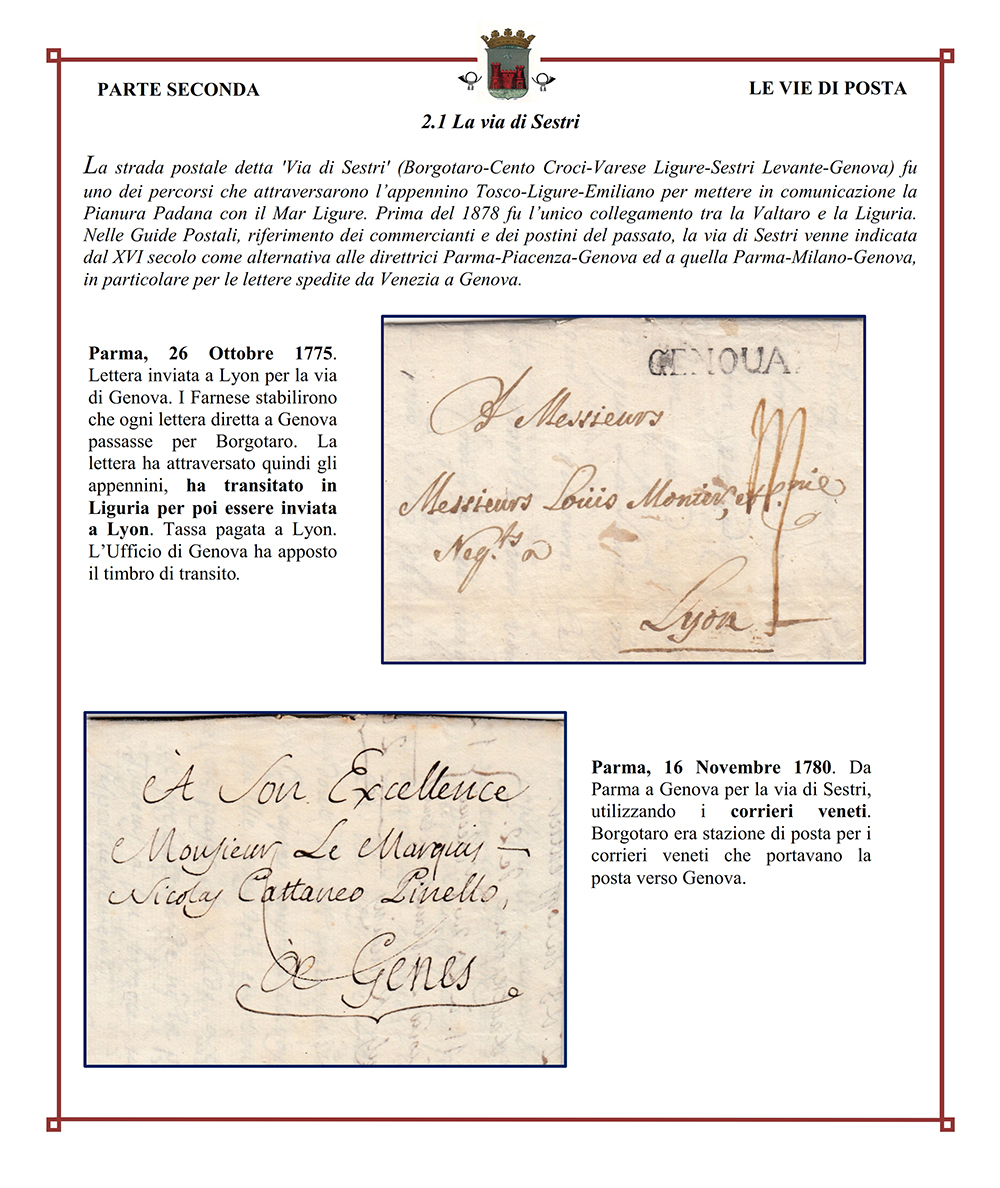 PARTE SECONDA
LE VIE DI POSTA
2.1 La via di Sestri
La strada postale detta 'Via di Sestri' (Borgotaro-Cento Croci-Varese Ligure-Sestri Levante-Genova) fu
uno dei percorsi che attraversarono l’appennino Tosco-Ligure-Emiliano per mettere in comunicazione la
Pianura Padana con il Mar Ligure. Prima del 1878 fu l’unico collegamento tra la Valtaro e la Liguria.
Nelle Guide Postali, riferimento dei commercianti e dei postini del passato, la via di Sestri venne indicata
dal XVI secolo come alternativa alle direttrici Parma-Piacenza-Genova ed a quella Parma-Milano-Genova,
in particolare per le lettere spedite da Venezia a Genova.
Parma, 26 Ottobre 1775.
Lettera inviata a Lyon per la via
di Genova. I Farnese stabilirono
che ogni lettera diretta a Genova
passasse per Borgotaro. La
lettera ha attraversato quindi gli
appennini, ha transitato in
Liguria per poi essere inviata
a Lyon. Tassa pagata a Lyon.
L’Ufficio di Genova ha apposto
il timbro di transito.
GENOUA
A Messieurs
Messieurs Loüis Monier, et C.nie
Neg.ts a
Lyon
À Son Excellence
Monsieur Le Marquis
Nicolas Cattaneo Pinello,
à Genes
Parma, 16 Novembre 1780. Da
Parma a Genova per la via di Sestri,
utilizzando i corrieri veneti.
Borgotaro era stazione di posta per i
corrieri veneti che portavano la
posta verso Genova.